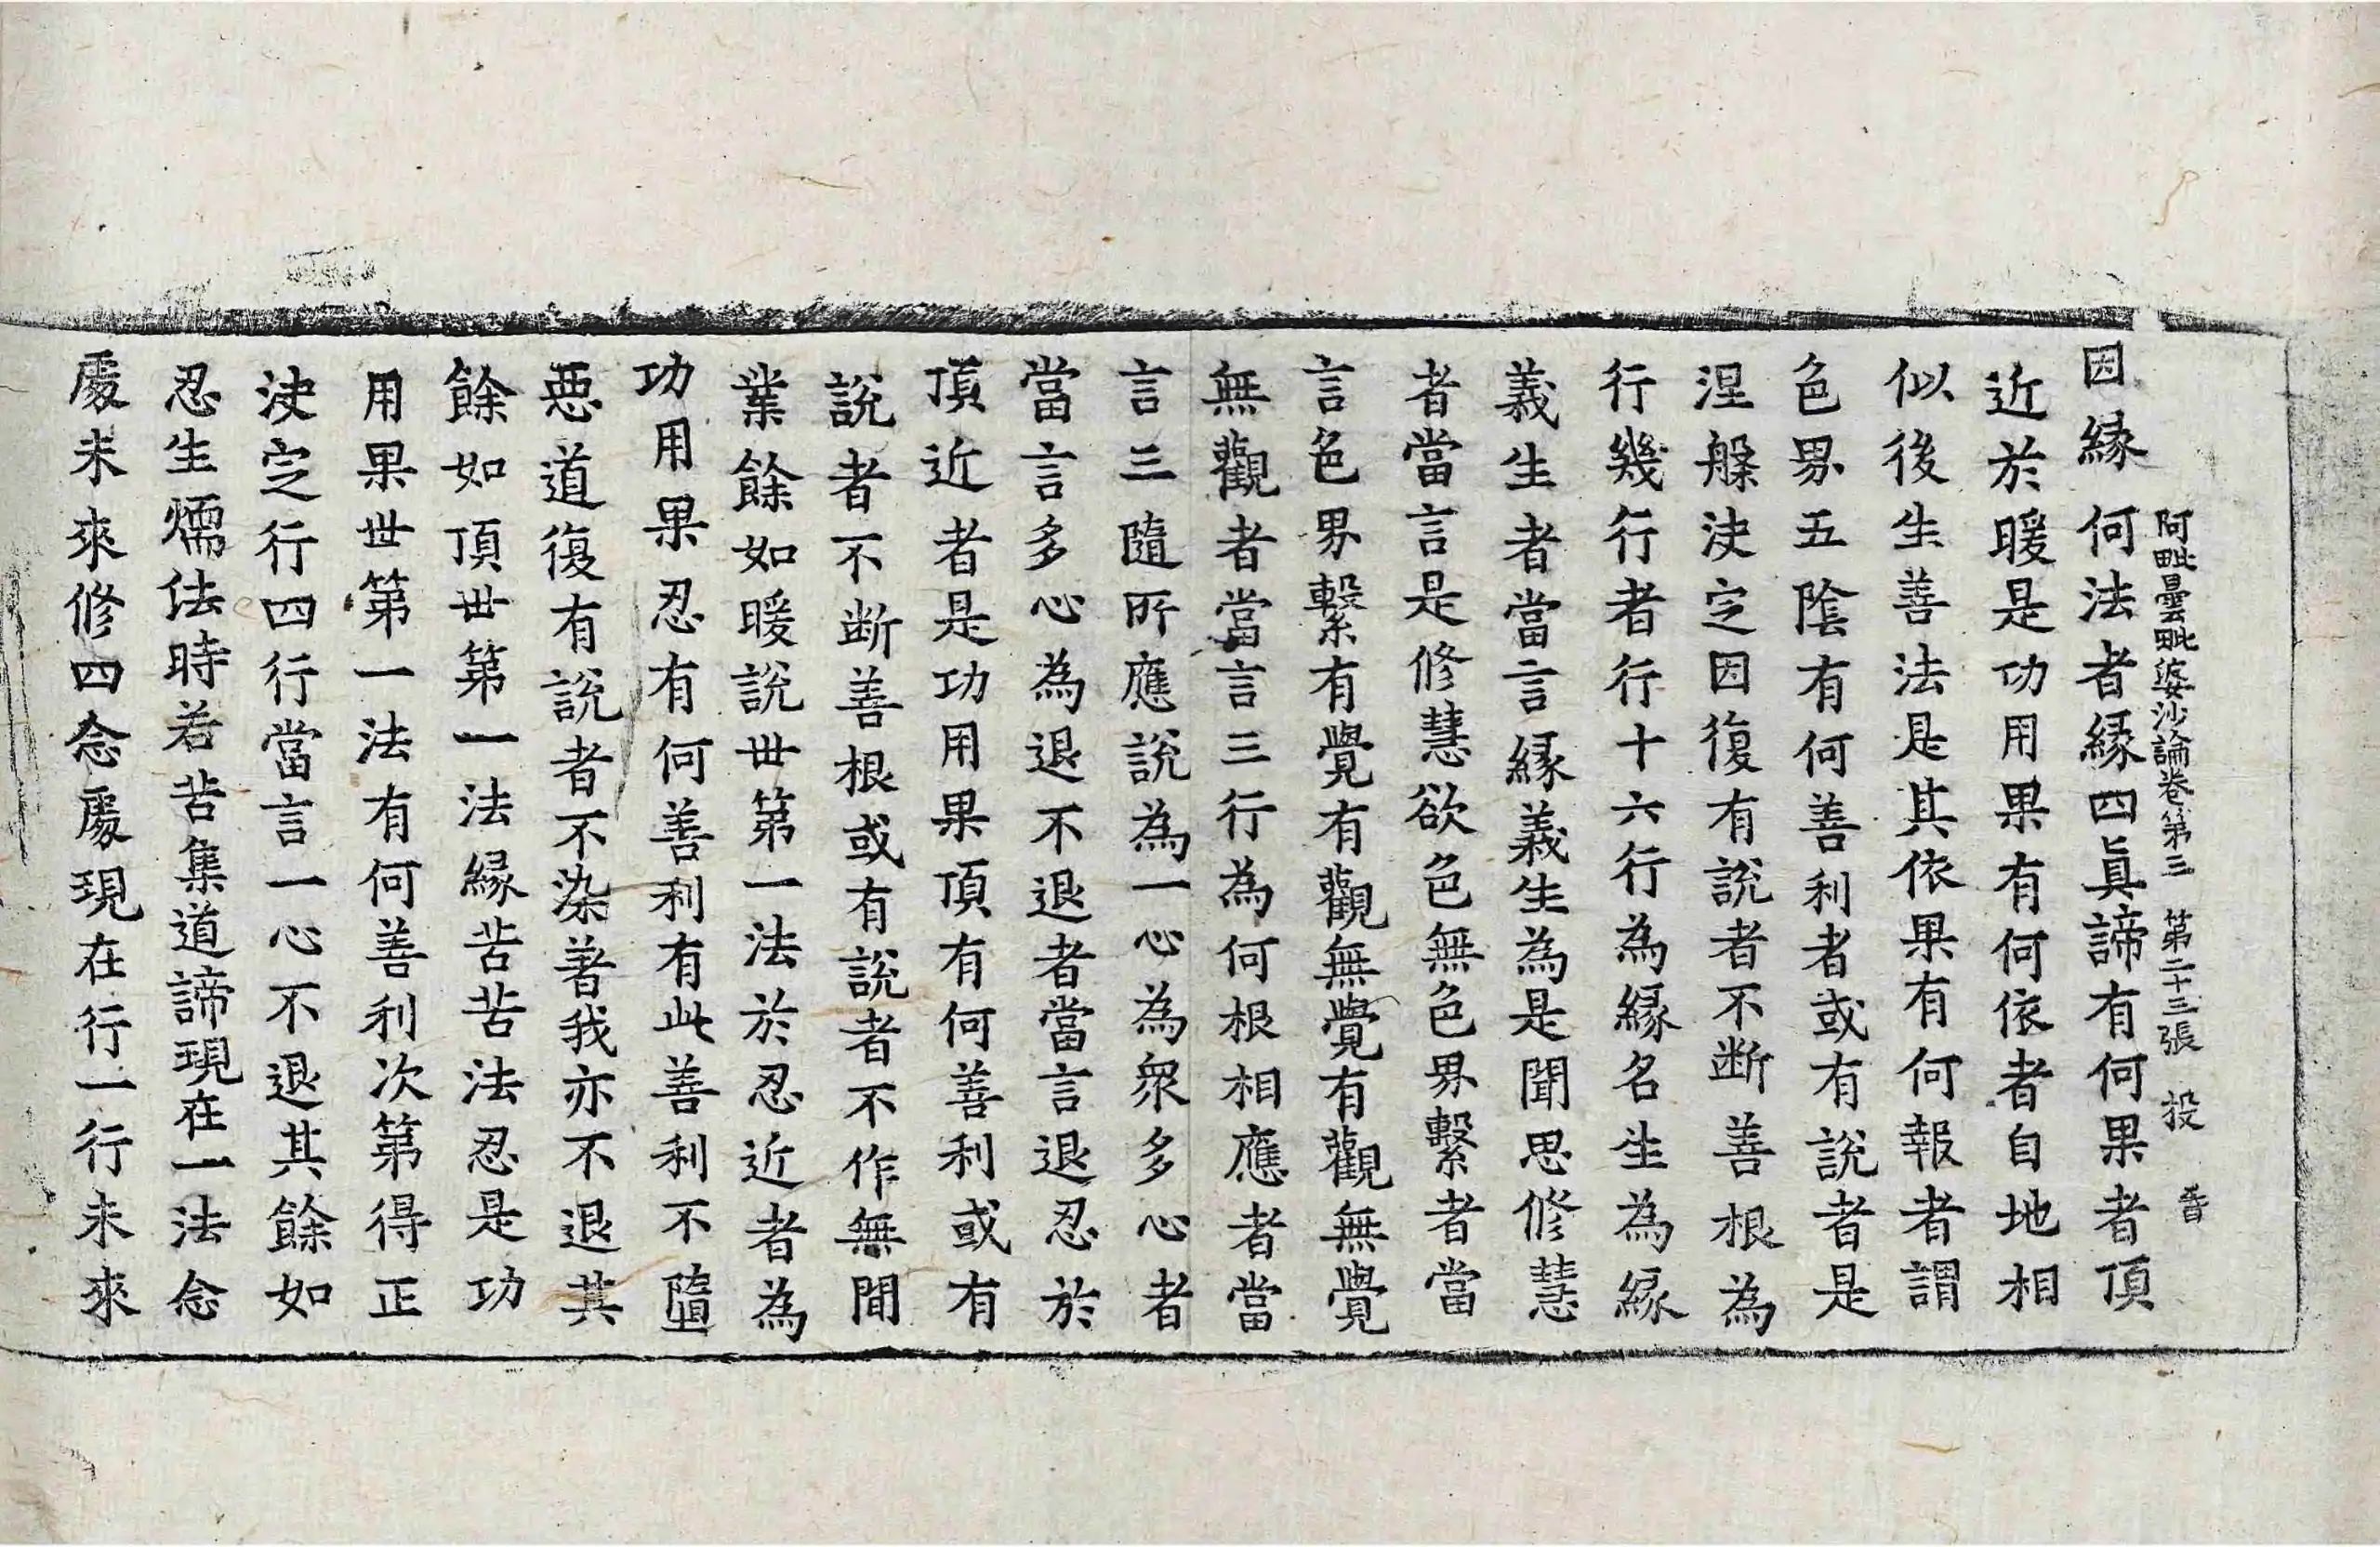 阿毗曇毗婆沙論卷第三 第二十三張 投
因緣何法者緣四眞諦有何果者頂
近於暖是功用果有何依者自地相
似後生善法是其依果有何報者謂
色界五陰有何善利者或有說者是
涅槃決定因復有說者不断善根為
行幾行者行十六行為緣名生為緣
義生者當言緣義生為是聞思修慧
者當言是修慧欲色無色界繫者當
言色界繫有覺有觀無覺有觀無覺
無觀者當言三行為何根相應者當
言三隨所應說為一心為衆多心者
當言多心為退不退者當言退忍於
頂近者是功用果頂有何善利或有
說者不断善根或有說者不作無間
業餘如暖說世第一法於忍近者為
功用果忍有何善利有此善利不墮
惡道復有說者不染著我亦不退其
餘如頂世第一法緣苦苦法忍是功
用果世第一法有何善利次第得正
決定行四行當言一心不退其餘如
忍生煗法時若苦集道諦現在一法念
處未來修四念處現在行一行未來